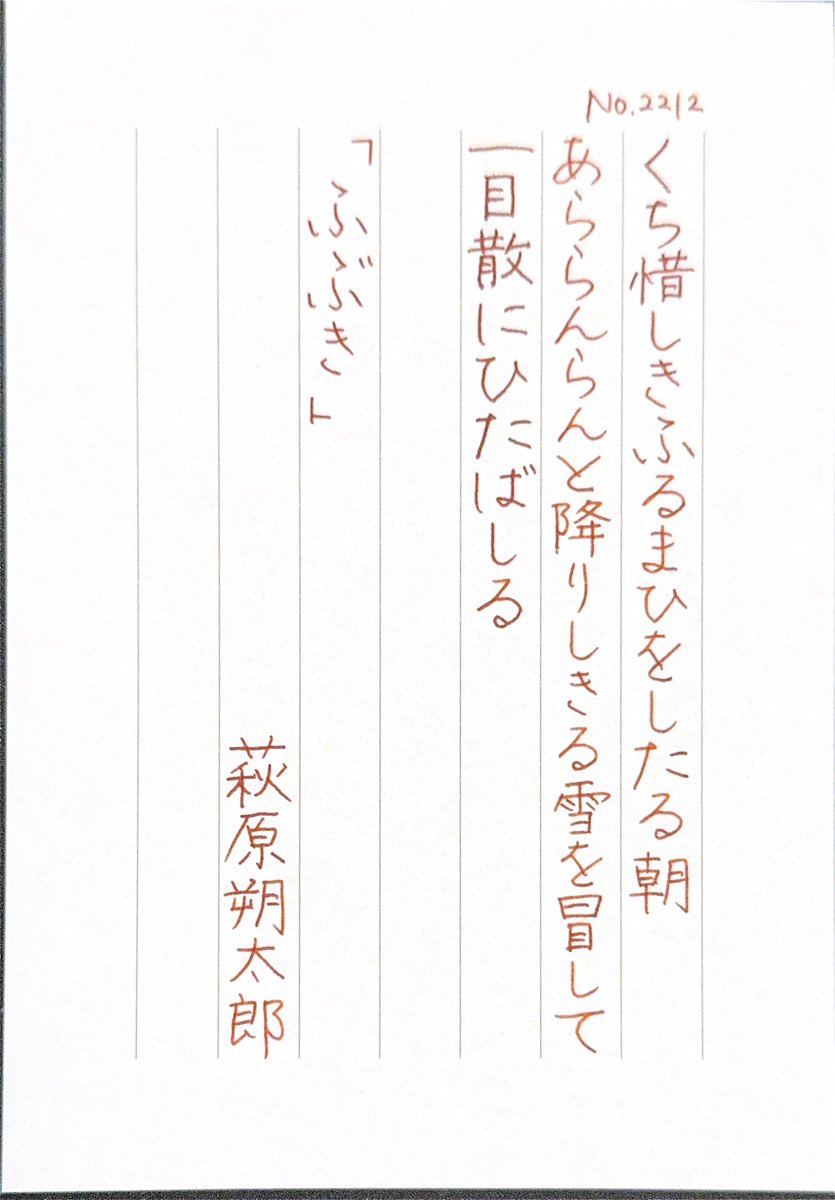 No.2212
くち惜しきふるまひをしたる朝
あららんらんと降りしきる雪を冒して
一目散にひたばしる
「ふぶき」
萩原朔太郎